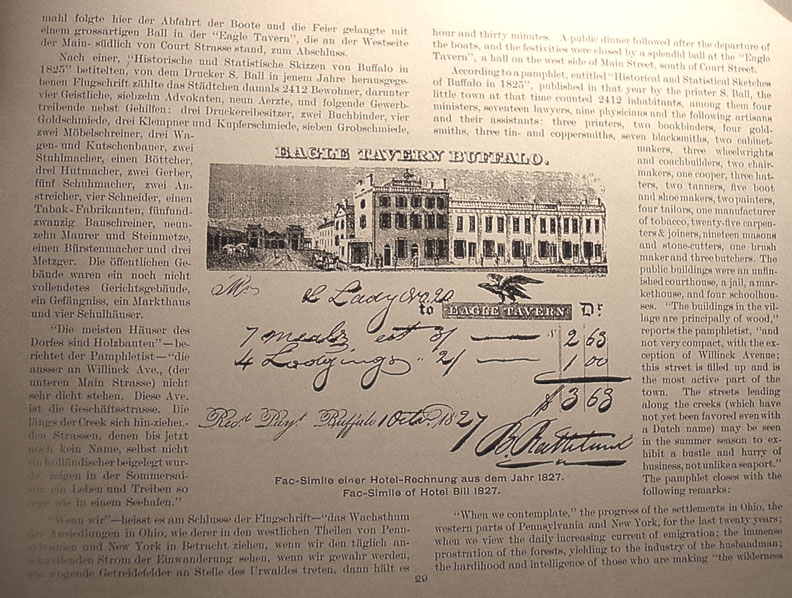 mahl folgte hier der Abfahrt der Boote und die Feier gelangte mit
einem grossartigen Ball in der "Eagle Tavern", die an der Westseite
der Main- südlich von Court Strasse stand, zum Abschluss.
Nach einer, "Historische und Statistische Skizzen von Buffalo in
1825" betitelten, von dem Drucker S. Ball in jenem Jahre herausgege-
benen Flugschrift zählte das Städtchen damals 2412 Bewohner, darunter
vier Geistliche, siebzehn Advokaten, neun Aerzte, und folgende Gewerb-
treibende nebst Gehilfen: drei Druckereibesitzer, zwei Buchbinder, vier
Goldschmiede, drei Klempner und Kupferschmiede, sieben Grobschmiede,
zwei Möbelschreiner, drei Wa-
gen- und Kutschenbauer, zwei
Stuhlmacher, einen Böttcher,
drei Hutmacher, zwei Gerber,
fünf Schuhmacher, zwei An-
streicher, vier Schneider, einen
Tabak-Fabrikanten, fünfund-
zwanzig Bauschreiner, neun-
zehn Maurer und Steinmetze,
einen Bürstenmacher und drei
Metzger. Die öffentlichen Ge-
bäude waren ein noch nicht
vollendetes Gerichtsgebäude,
ein Gefängniss, ein Markthaus
und vier Schulhäuser.
"Die meisten Häuser des
Dorfes sind Holzbauten"—be-
richtet der Pamphletist—"die
ausser an Willinck Ave., (der
unteren Main Strasse) nicht
sehr dicht stehen. Diese Ave.
ist die Geschäftsstrasse. Die
längs der Creek sich hin-ziehen-
den Strassen, denen bis jetzt
noch kein Name, selbst nicht
ein holländischer beigelegt wur-
de, zeigen in der Sommersai-
son ein Leben und Treiben so
rege wie in einem Seehafen."
"Wenn wir"—heisst es am Schlusse der Flugschrift—"das Wachsthum
der Ansiedlungen in Ohio, wie derer in den westlichen Theilen von Penn-
sylvanien und New York in Betracht ziehen, wenn wir den täglich an-
schwellenden Strom der Einwanderung sehen, wenn wir gewahr werden,
wie wogende Getreidefelder an Stelle des Urwaldes treten, dann hält es
hour and thirty minutes. A public dinner followed after the departure of
the boats, and the festivities were closed by a splendid ball at the "Eagle
Tavern", a hall on the west side of Main Street, south of Court Street.
According to a pamphlet, entitled "Historical and Statistical Sketches
of Buffalo in 1825", published in that year by the printer S. Ball, the
little town at that time counted 2412 inhabitants, among them four
ministers, seventeen lawyers, nine physicians and the following artisans
and their assistants: three printers, two bookbinders, four gold-
smiths, three tin- and coppersmiths, seven blacksmiths, two cabinet-
makers, three wheelwrights
and coachbuilders, two chair-
makers, one cooper, three hat-
ters, two tanners, five boot
and shoe makers, two painters,
four tailors, one manufacturer
of tobacco, twenty-five carpen-
ters & joiners, nineteen masons
and stone-cutters, one brush
maker and three butchers. The
public buildings were an unfin-
ished courthouse, a jail, a mar-
kethouse, and four schoolhou-
ses. "The buildings in the vil-
lage are principally of wood,"
reports the pamphletist, "and
not very compact, with the ex-
ception of Willinck Avenue;
this street is filled up and is
the most active part of the
town. The streets leading
along the creeks (which have
not yet been favored even with
a Dutch name) may be seen
in the summer season to ex-
hibit a bustle and hurry of
business, not unlike a seaport."
The pamphlet closes with the
following remarks:
"When we contemplate," the progress of the settlements in Ohio, the
western parts of Pennsylvania and New York, for the last twenty years;
when we view the daily increasing current of emigration; the immense
prostration of the forests, yielding to the industry of the husbandman;
the hardihood and intelligence of those who are making "the wilderness
EAGLE TAVERN BUFFALO.
Mr & Lady No 20
to EAGLE TAVERN Dr.
7 meals at 3/ — $ 2 63
4 Lodgings 2/ — 1 00
$ 3 63
Recd. Payt. Buffalo 1 Octo. 1827
Fac-Simile einer Hotel-Rechnung aus dem Jahr 1827.
Fac-Simile of Hotel Bill 1827.
29